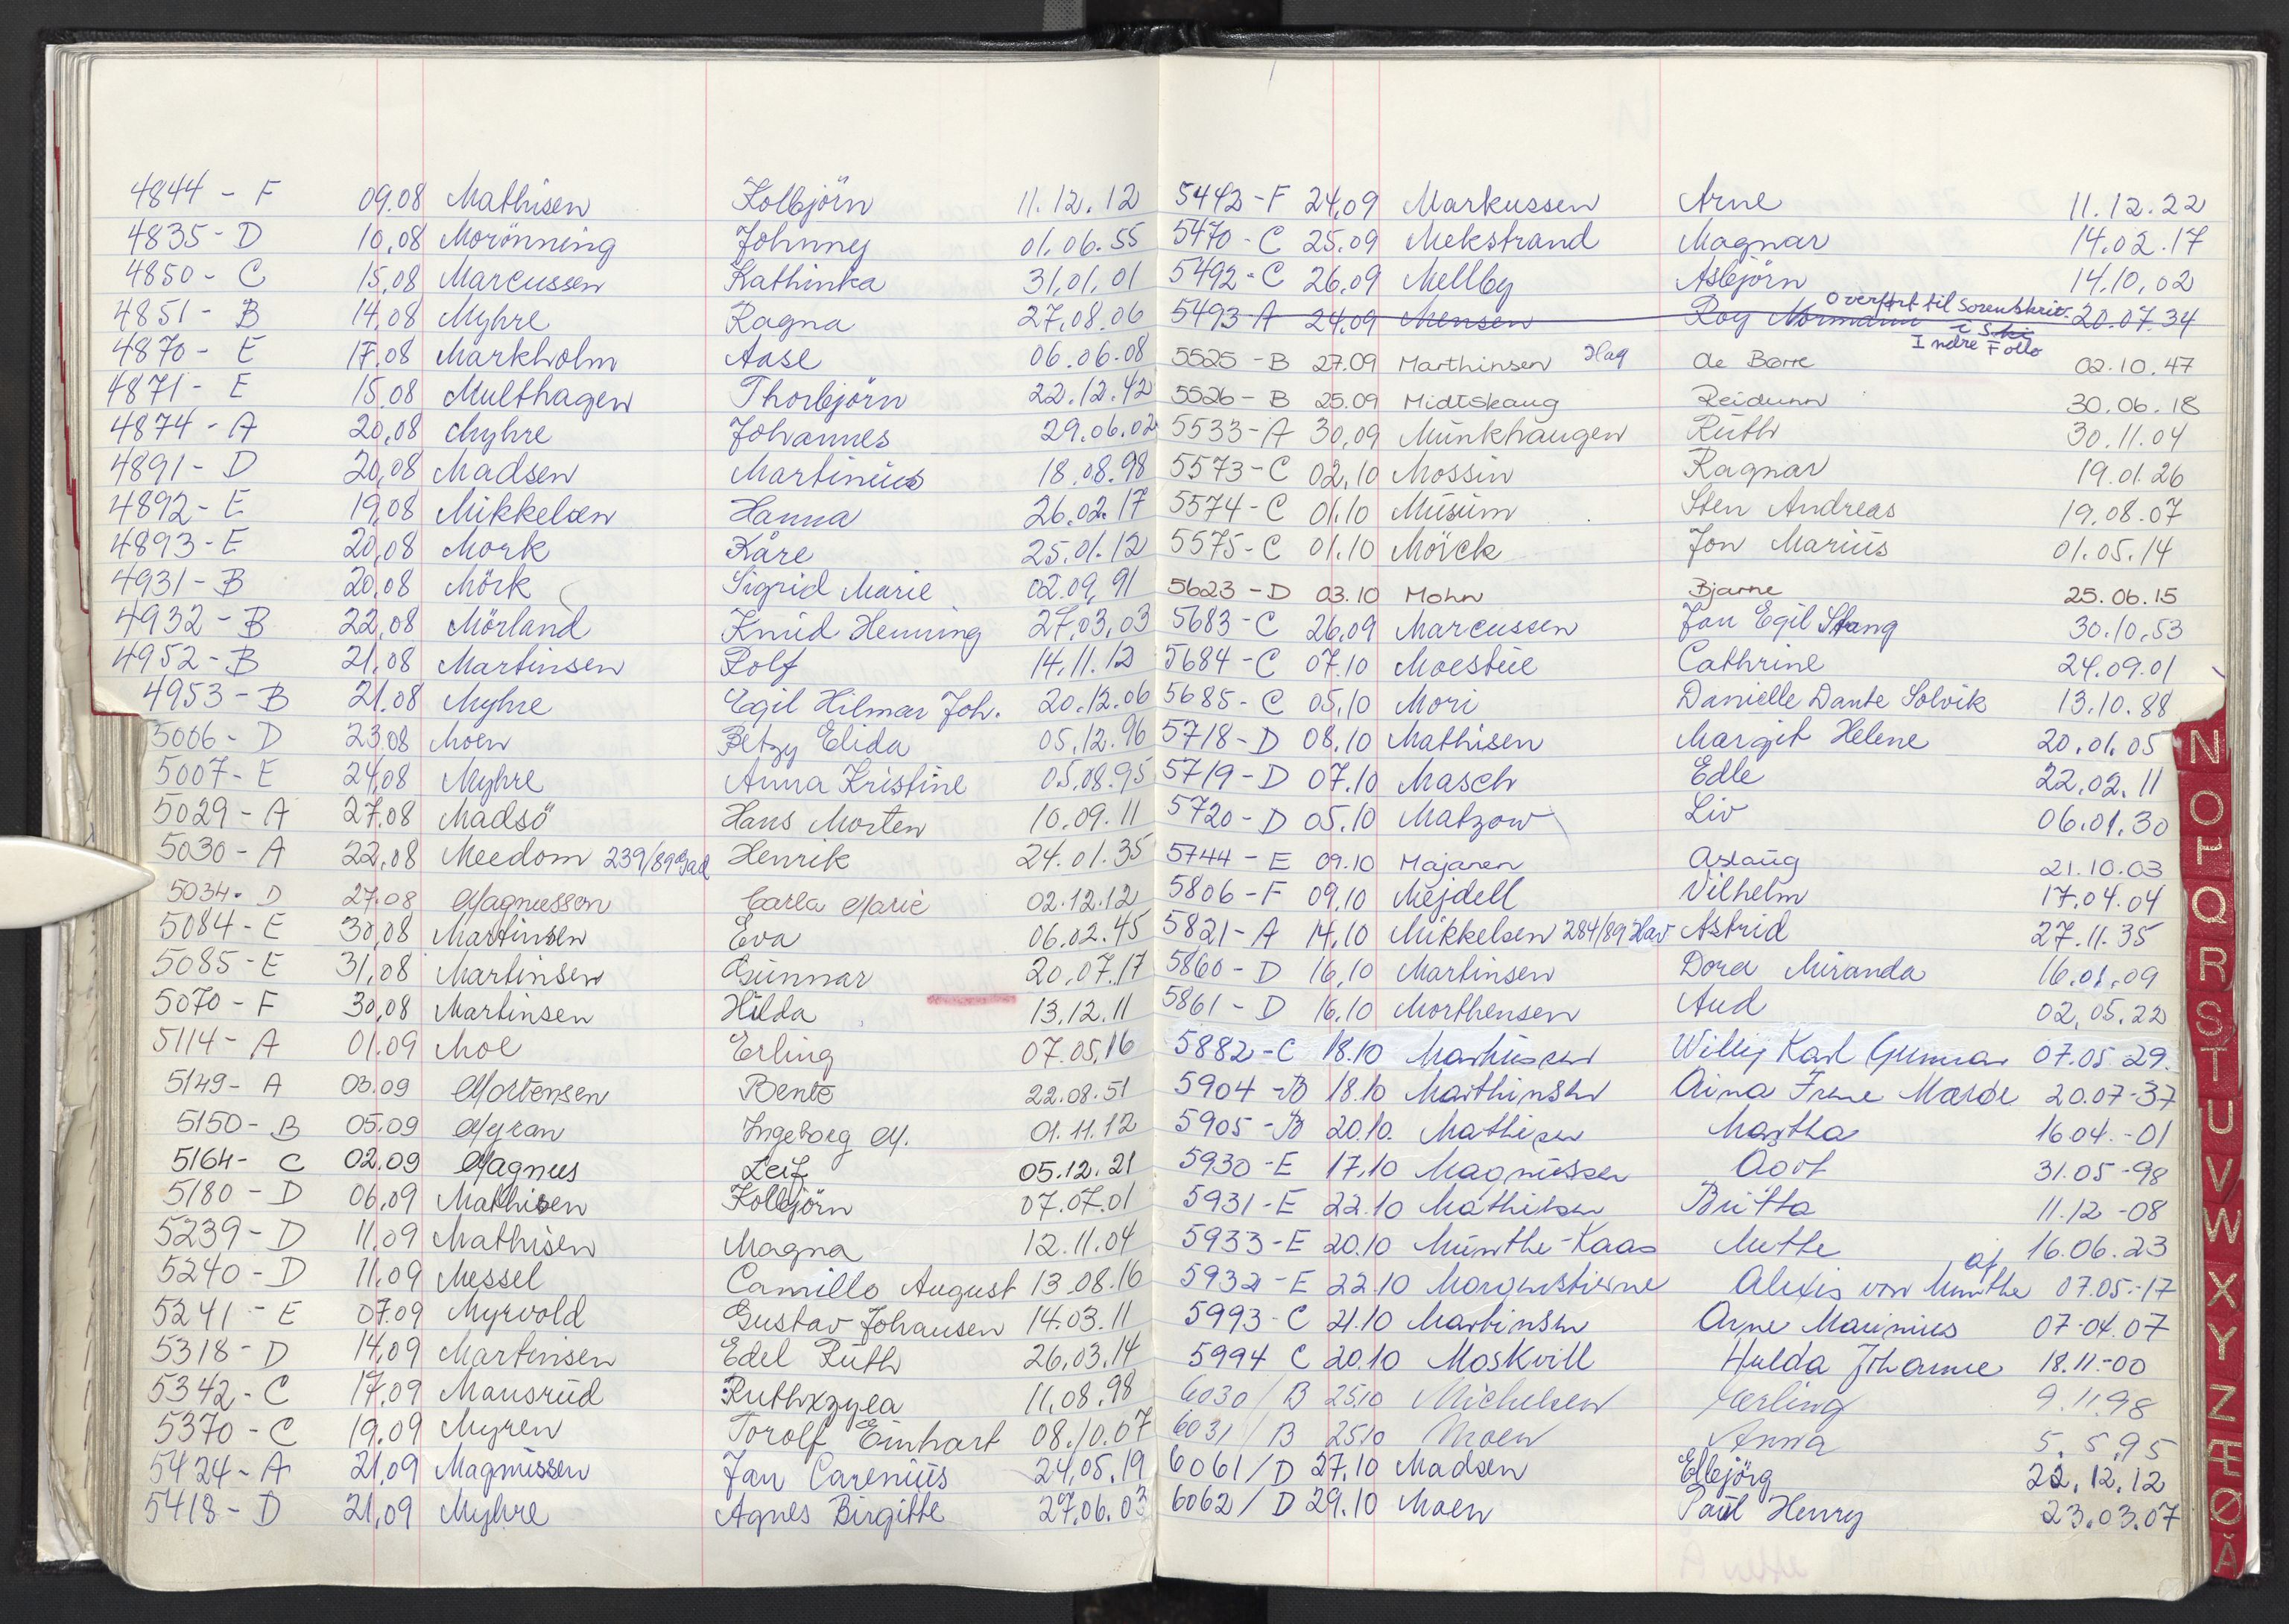 4844 - F 09.08 Mathisen Kolbjörn 11.12.12
4835 - D 10.08 Morönning Johnny 01.06.55
4850 - C 15.08 Marcussen Kathinka 31.01.01
4851 - B 14.08 Myhre Ragna 27.08.06
4870 - E 17.08 Markholm Aase 06.06.08
4871 - E 15.08 Multhagen Thorbjörn 22.12.42
4874 - A 20.08 Myhre Johannes 29.06.02
4891 - D 20.08 Madsen Martinius 18.08.98
4892 - E 19.08 Mikkelsen Hanna 26.02.17
4893 - E 20.08 Mork Kåre 25.01.12
4931 - B 20.08 Mörk Sigrid Marie 02.09.91
4932 - B 22.08 Mörland Knud Henning 27.03.03
4952 - B 21.08 Martinsen Rolf 14.11.12
4953 - B 21.08 Myhre Egil Hilmar Joh. 20.12.06
5006 - D 23.08 Moen Betzy Elida 05.12.96
5007 - E 24.08 Myhre Anna Kristine 05.08.95
5029 - A 27.08 Madsö Hans Morten 10.09.11
5030 - A 22.08 Meedom 239/89 Gad Henrik 24.01.35
5034 - D 27.08 Magnusson Carla Marie 02.12.12
5084 - E 30.08 Martinsen Eva 06.02.45
5085 - E 31.08 Martinsen Gunnar 20.07.17
5070 - F 30.08 Martinsen Hilda 13.12.11
5114 - A 01.09 Moe Erling 07.05.16
5149 - A 03.09 Mortensen Bente 22.08.51
5150 - B 05.09 Myran Ingeborg M. 01.11.12
5164 - C 02.09 Magnus Leif 05.12.21
5180 - D 06.09 Mathisen Kolbjörn 07.07.01
5239 - D 11.09 Mathisen Magna 12.11.04
5240 - D 11.09 Messel Camillo August 13.08.16
5241 - E 07.09 Myrvold Gustav Johansen 14.03.11
5318 - D 14.09 Martinsen Edel Ruth 26.03.14
5342 - C 17.09 Mausrud 11.08.98
5370 - C 19.09 Myren Torolf Einhart 08.10.07
5424 - A 21.09 Magnussen Jan Carenius 24.05.19
5418 - D 21.09 Myhre Agnes Birgitte 27.06.03
5442 - F 24.09 Markussen Arne 11.12.22
5470 - C 25.09 Mekstrand Magnar 14.02.17
5492 - C 26.09 Mellby Asbjörn 14.10.02
Overført til Sorenskriv.
5493 A 24.09 Mensen Roy Normann 20.07.34
i Ski
Indre Follo
5525 - B 27.09 Marthinsen Hag de Barre 02.10.47
5526 - B 25.09 Midtskaug Reidunn 30.06.18
5533 - A 30.09 Munkhaugen Ruth 30.11.04
5573 - C 02.10 Mossin Ragnar 19.01.26
5574 - C 01.10 Musum Sten Andreas 19.08.07
5575 - C 01.10 Mörck Jon Marius 01.05.14
5623 - D 03.10 Mohn Bjarne 25.06.15
5683 - C 26.09 Marcussen Jan Egil Stang 30.10.53
5684 - C 07.10 Moestue Cathrine 24.09.01
5685 - C 05.10 Mori Danielle Dante Solvik 13.10.88
5718 - D 08.10 Mathisen Margit Helene 20.01.05
5719 - D 07.10 Masch Edle 22.02.11
5720 - D 05.10 Matzow Liv 06.01.30
5744 - E 09.10 Majanen Aslaug 21.10.03
5806 - F 09.10 Mejdell Vilhelm 17.04.04
5821 - A 14.10 Mikkelsen 284/89 Hav Astrid 27.11.35
5860 - D 16.10 Martinsen Dora Miranda 16.01.09
5861 - D 16.10 Morthensen Aud 02.05.22
5882 - C 18.10 Markussen Willy Karl Gunnar 07.05 29.
5904 - B 18.10 Marthinsen Aina Irene 20.07-37
5905 - B 20.10. Mathisen Martha 16.04.-01
5930 - E 17.10 Magnussen 31.05-98
5931 - E 22.10 Mathisen Britta 11.12-08
5933 - E 20.10 Munthe-Kaas Mette 16.06.23
af
5932 - E 22.10 Morgenstierne Alexis von Munthe 07.05.-17
5993 - C 21.10 Martinsen Arne Marinius 07-04.07
5994 C 20.10 Moskvill Hulda Johanne 18.11.-00
6030 / B 25.10 Michelsen Erling 9.11.98
6031 / B 25.10 Moen Anna 5.5.95
6061 / D 27.10 Madsen Elbjörg 22.12.12
6062 / D 29.10 Moen Paul Henry 23.03.07
N
O
P
Q
R
S
T
U
V
W
X
Y
Z
Æ
Ø
Å